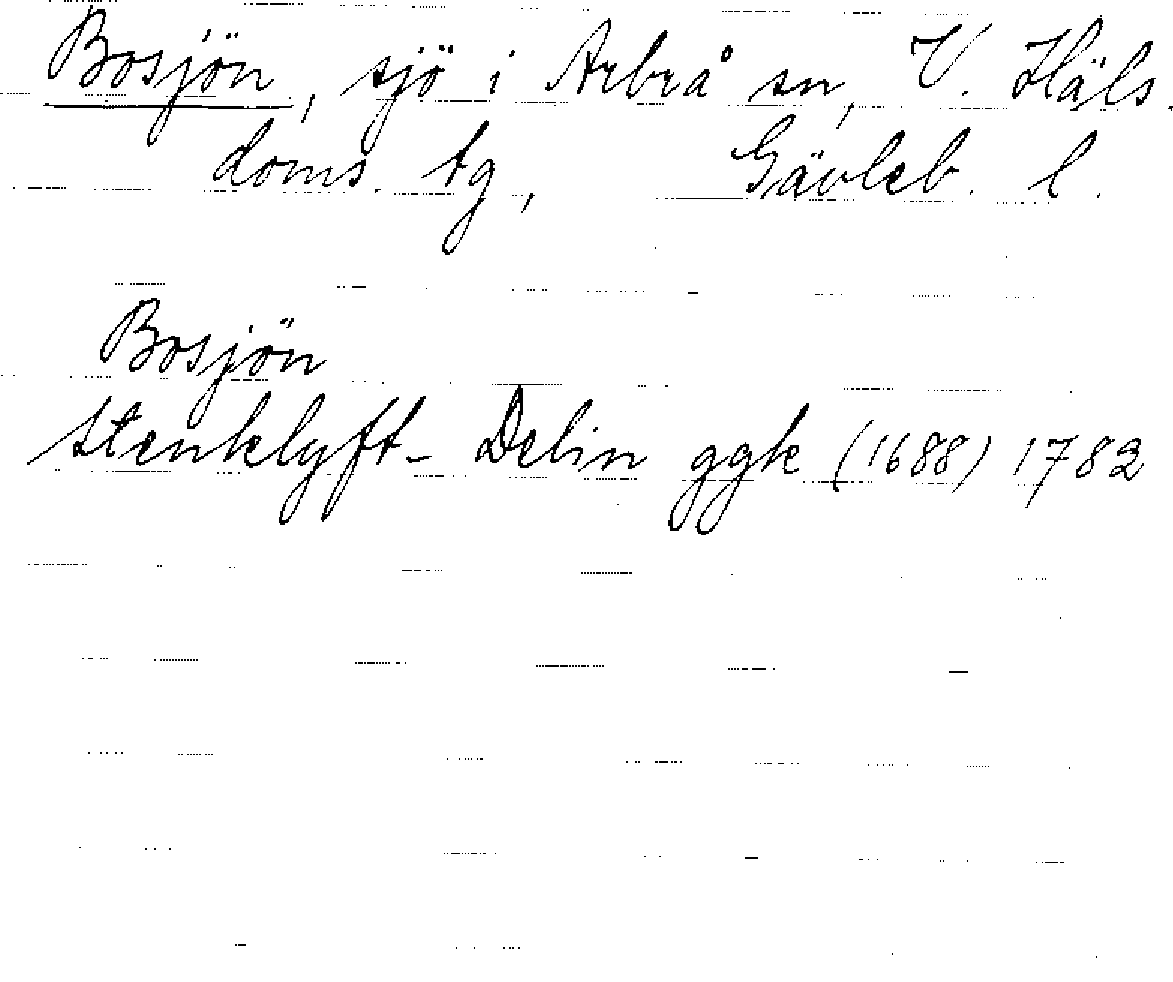 Bosjön, sjö i Arbrå sn, V. Häls.
doms. tg, Gävleb. l.
Bosjön
Stenklyft- Delin ggk (1688) 1782